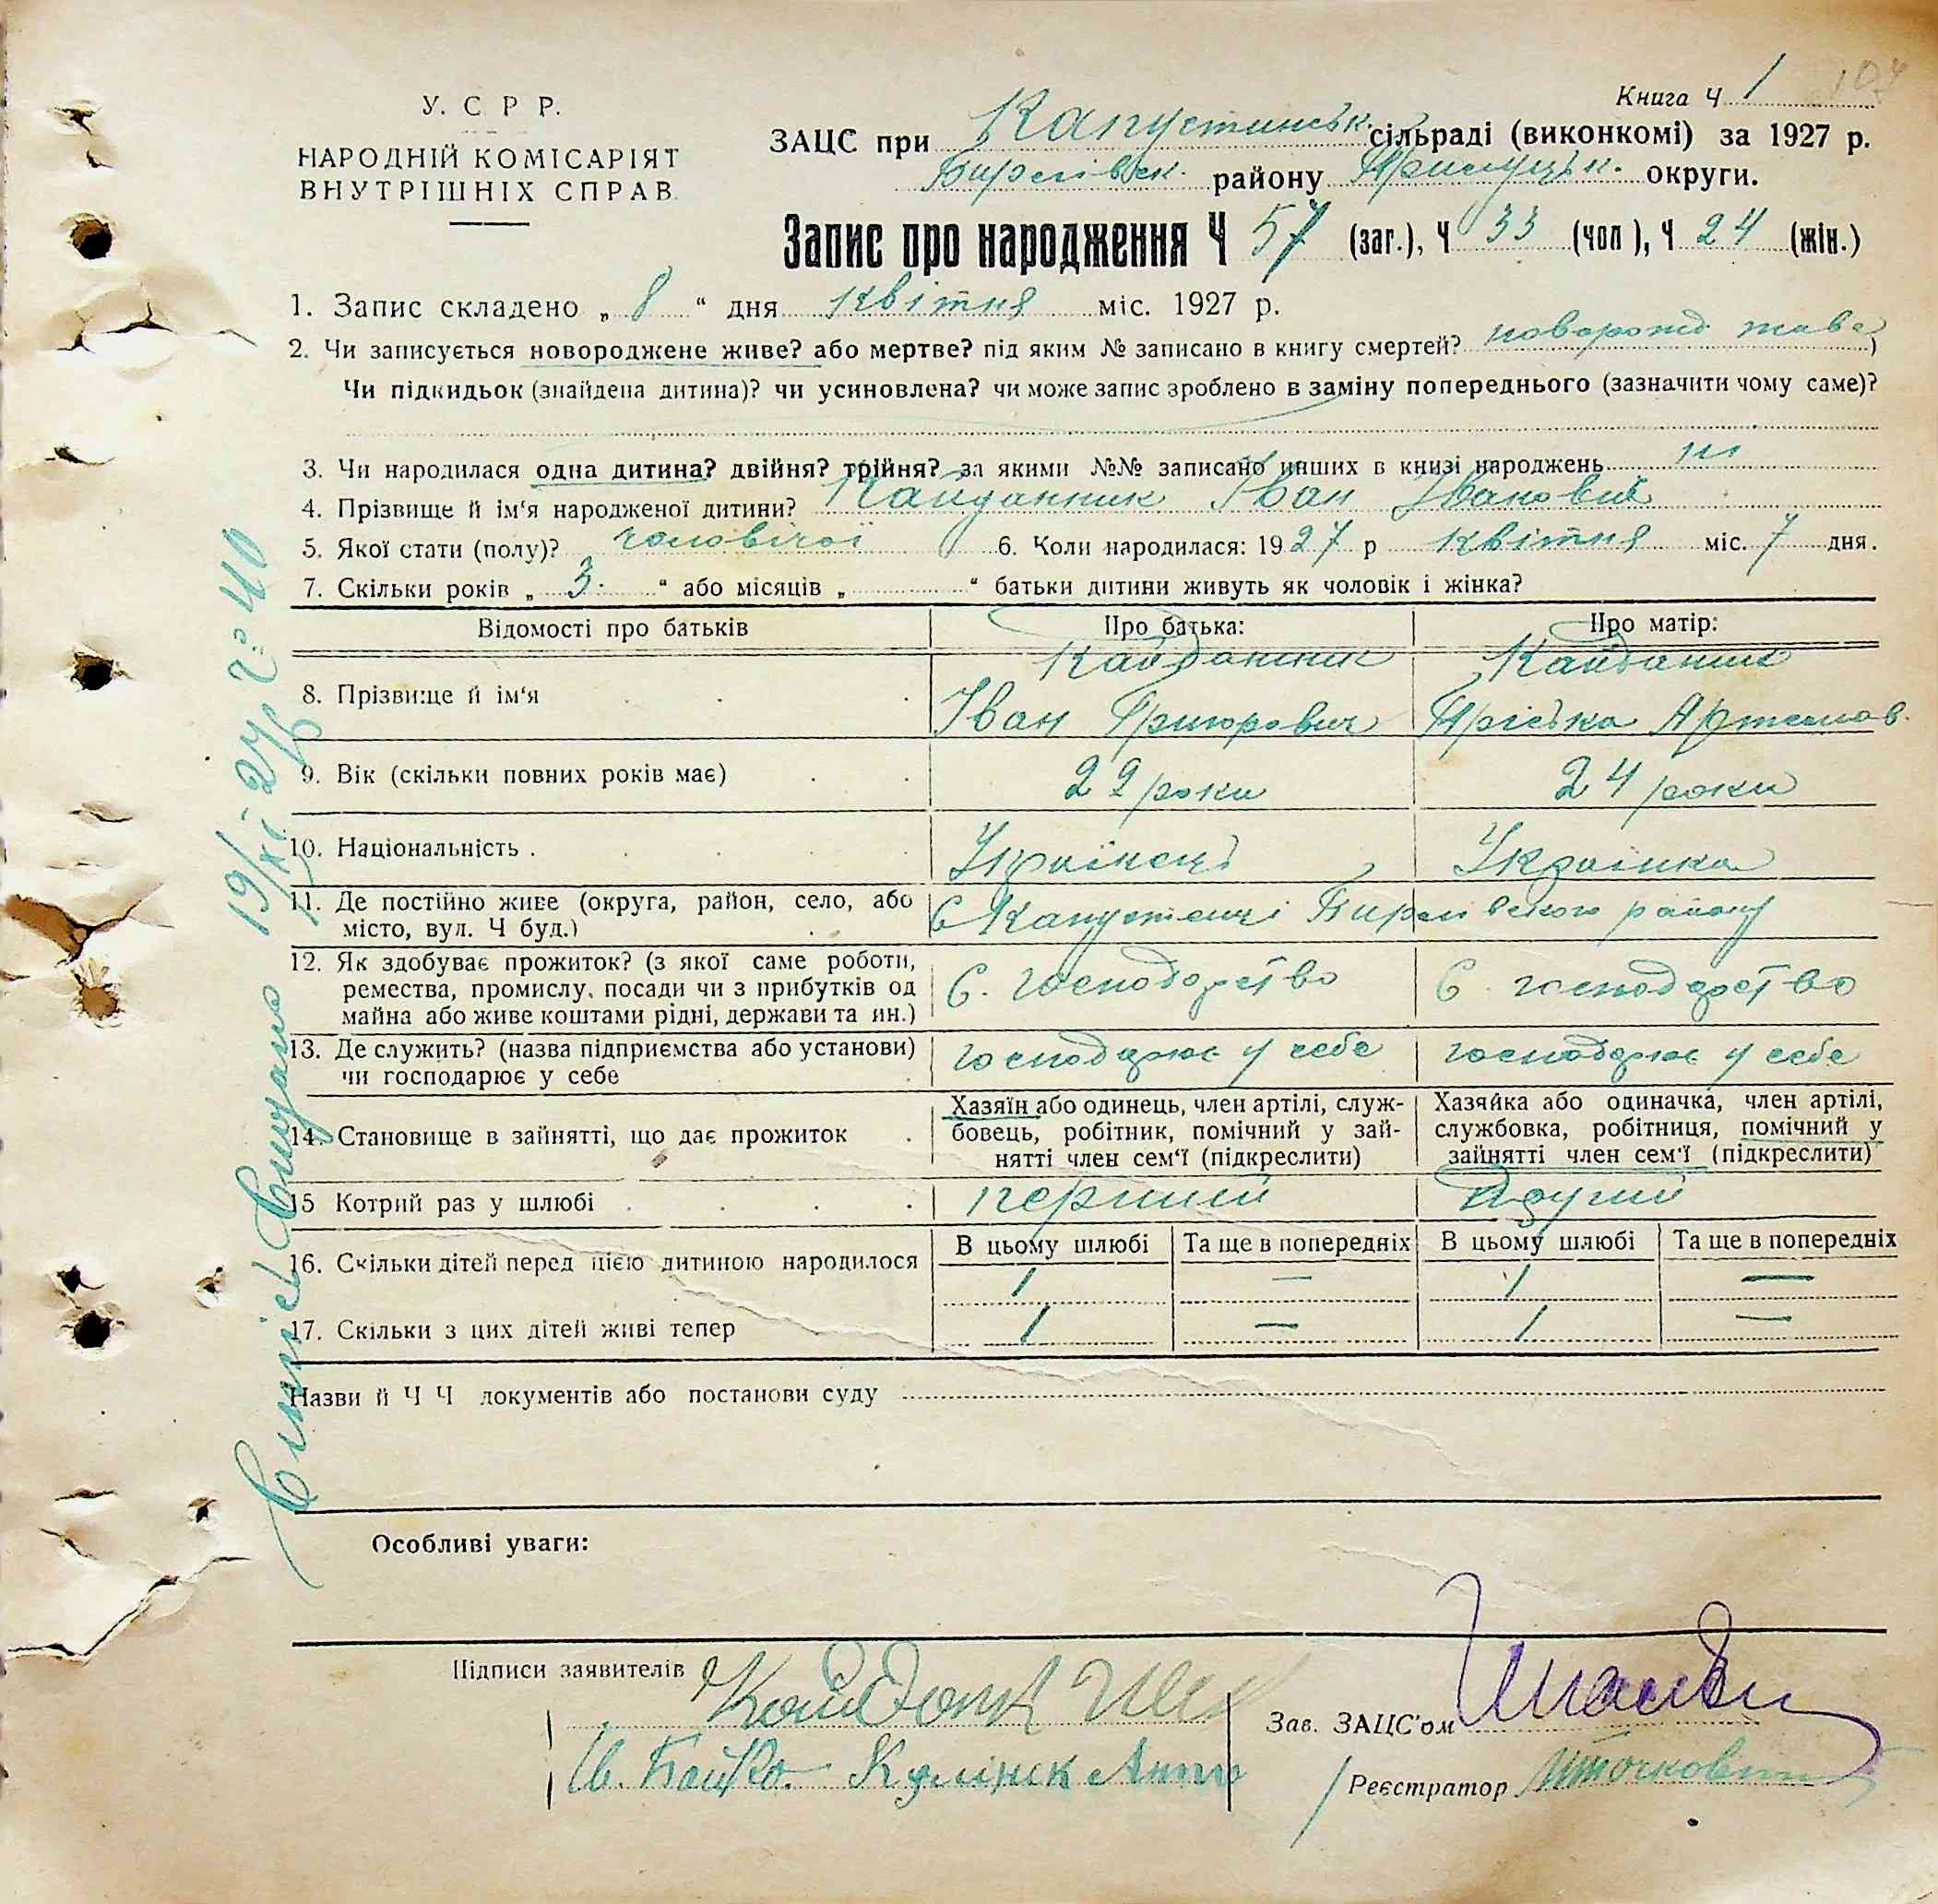 Книга Ч 1
У. С Р Р.
НАРОДНІЙ КОМІСАРІЯТ
ВНУТРІШНІХ СПРАВ.
ЗАЦС при Капустинськ. сільраді (виконкомі) за 1927 р.
району Прилуцьк. округи.
Запис про народження Ч 57 (заг.), Ч 33 (чол), Ч 24 (жін.)
1. Запис складено „ 8 “ дня квітня міс. 1927 р.
2. Чи записується новороджене живе? або мертве? під яким № записано в книгу смертей? живе
Чи підкидьок (знайдена дитина)? чи усиновлена? чи може запис зроблено в заміну попереднього (зазначити чому саме)?
3. Чи народилася одна дитина? двійня? трійня? за якими №№ записано инших в книзі народжень
4. Прізвище й ім‘я народженої дитини? Кайданник Іван Іванович
5. Якої стати (полу)? чоловічої 6. Коли народилася: 1927 р квітня міс. 7 дня.
7. Скільки років „ 3. “ або місяців „ “ батьки дитини живуть як чоловік і жінка?
Відомості про батьків Про батька: Про матір:
Кайданник Кайданник
8. Прізвище й ім‘я Іван Григорович Пріська Артемов.
9. Вік (скільки повних років має) 22 роки 24 роки
10. Національність . Українець Українка
11. Де постійно живе (округа, район, село, або
місто, вул. Ч буд.) С Капустинці району
12. Як здобуває прожиток? (з якої саме роботи,
ремества, промислу, посади чи з прибутків од
майна або живе коштами рідні, держави та ин.) С. господарство С. господарство
13. Де служить? (назва підприємства або установи)
чи господарює у себе господарює у себе господарює у себе
14. Становище в зайнятті, що дає прожиток
Хазяїн або одинець, член артілі, служ-
бовець, робітник, помічний у зай-
нятті член сем‘ї (підкреслити)
Хазяйка або одиначка, член артілі,
службовка, робітниця, помічний у
зайнятті член сем‘ї (підкреслити)
15 Котрий раз у шлюбі перший другий
В цьому шлюбі Та ще в попередніх В цьому шлюбі Та ще в попередніх
16. Скільки дітей перед цією дитиною народилося 1 — 1 —
17. Скільки з цих дітей живі тепер 1 — 1 —
Назви й Ч Ч документів або постанови суду
Особливі уваги:
Підписи заявителів
Зав. ЗАЦС‘ом
Ів. Бойко.
Реєстратор